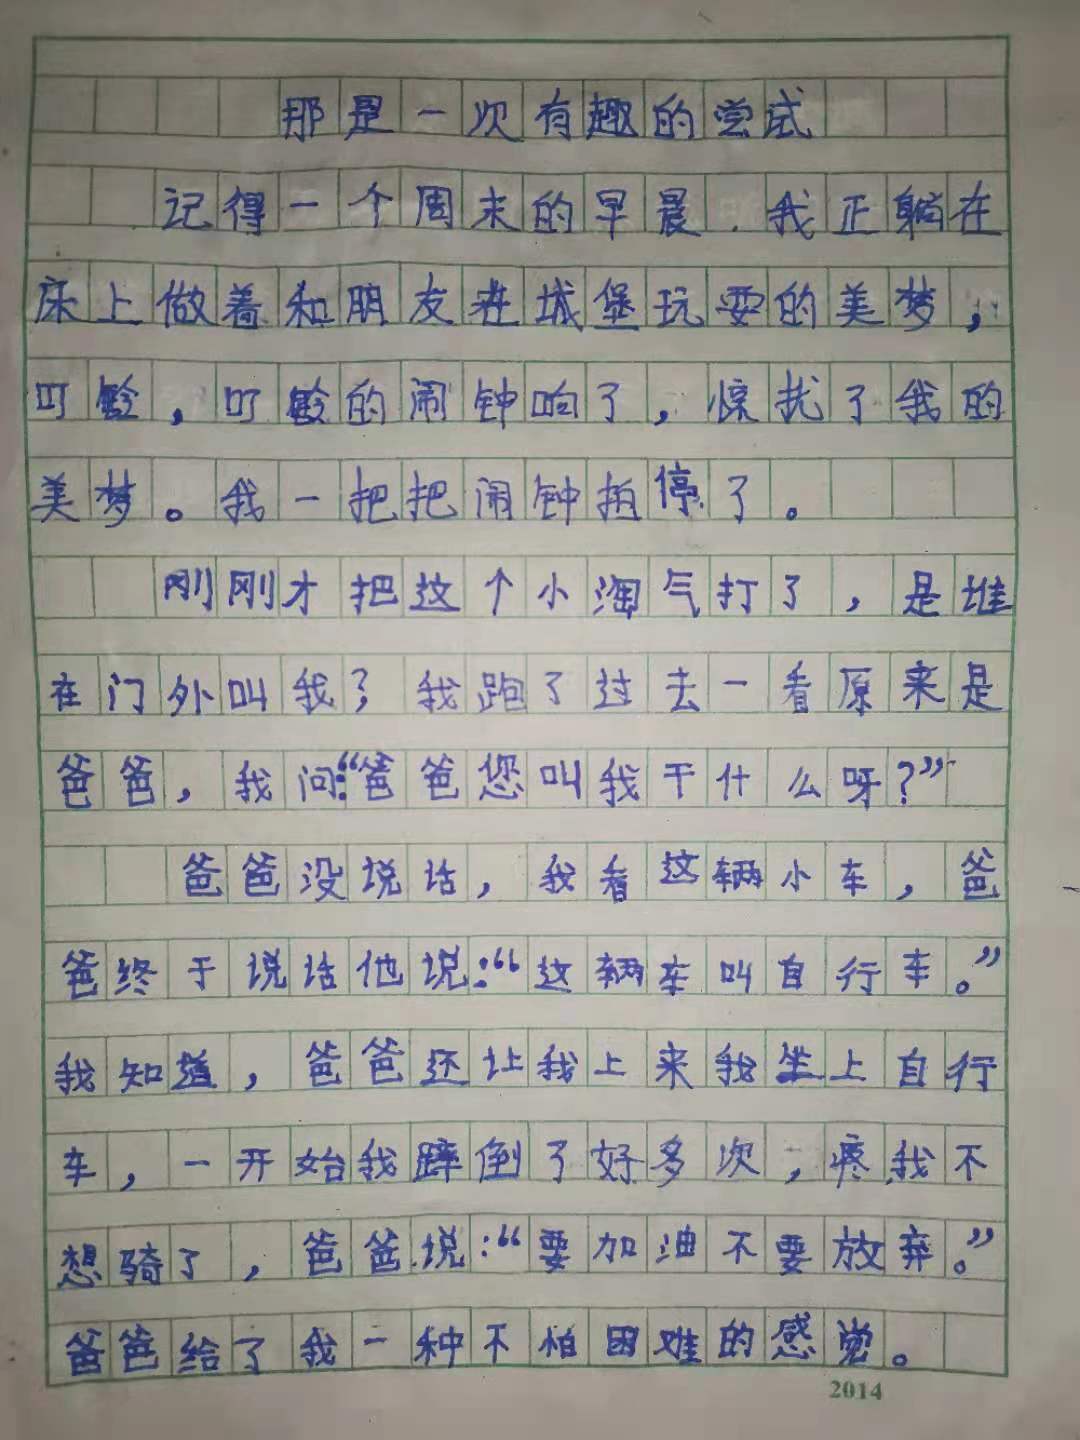 那是一次有趣的尝试
记得一个周末的早晨.我正躺在
床上做着和朋友在城堡玩耍的美梦,
叮铃,叮铃的闹钟响了,惊扰了我的
美梦。我一把把闹钟拍停了。
刚刚才把这个小淘气打了,是谁
在门外叫我?我跑了过去一看原来是
爸爸,我问:“爸爸您叫我干什么呀?”
爸爸没说话,我看这辆小车,爸
爸终于说话他说:“这辆车叫自行车。”
我知道,爸爸还让我上来我坐上自行
车,一开始我蹿倒了好多次,疼我不
想骑了,爸爸说:“要加油不要放弃。”
爸爸给了我一种不怕困难的感觉。
2014